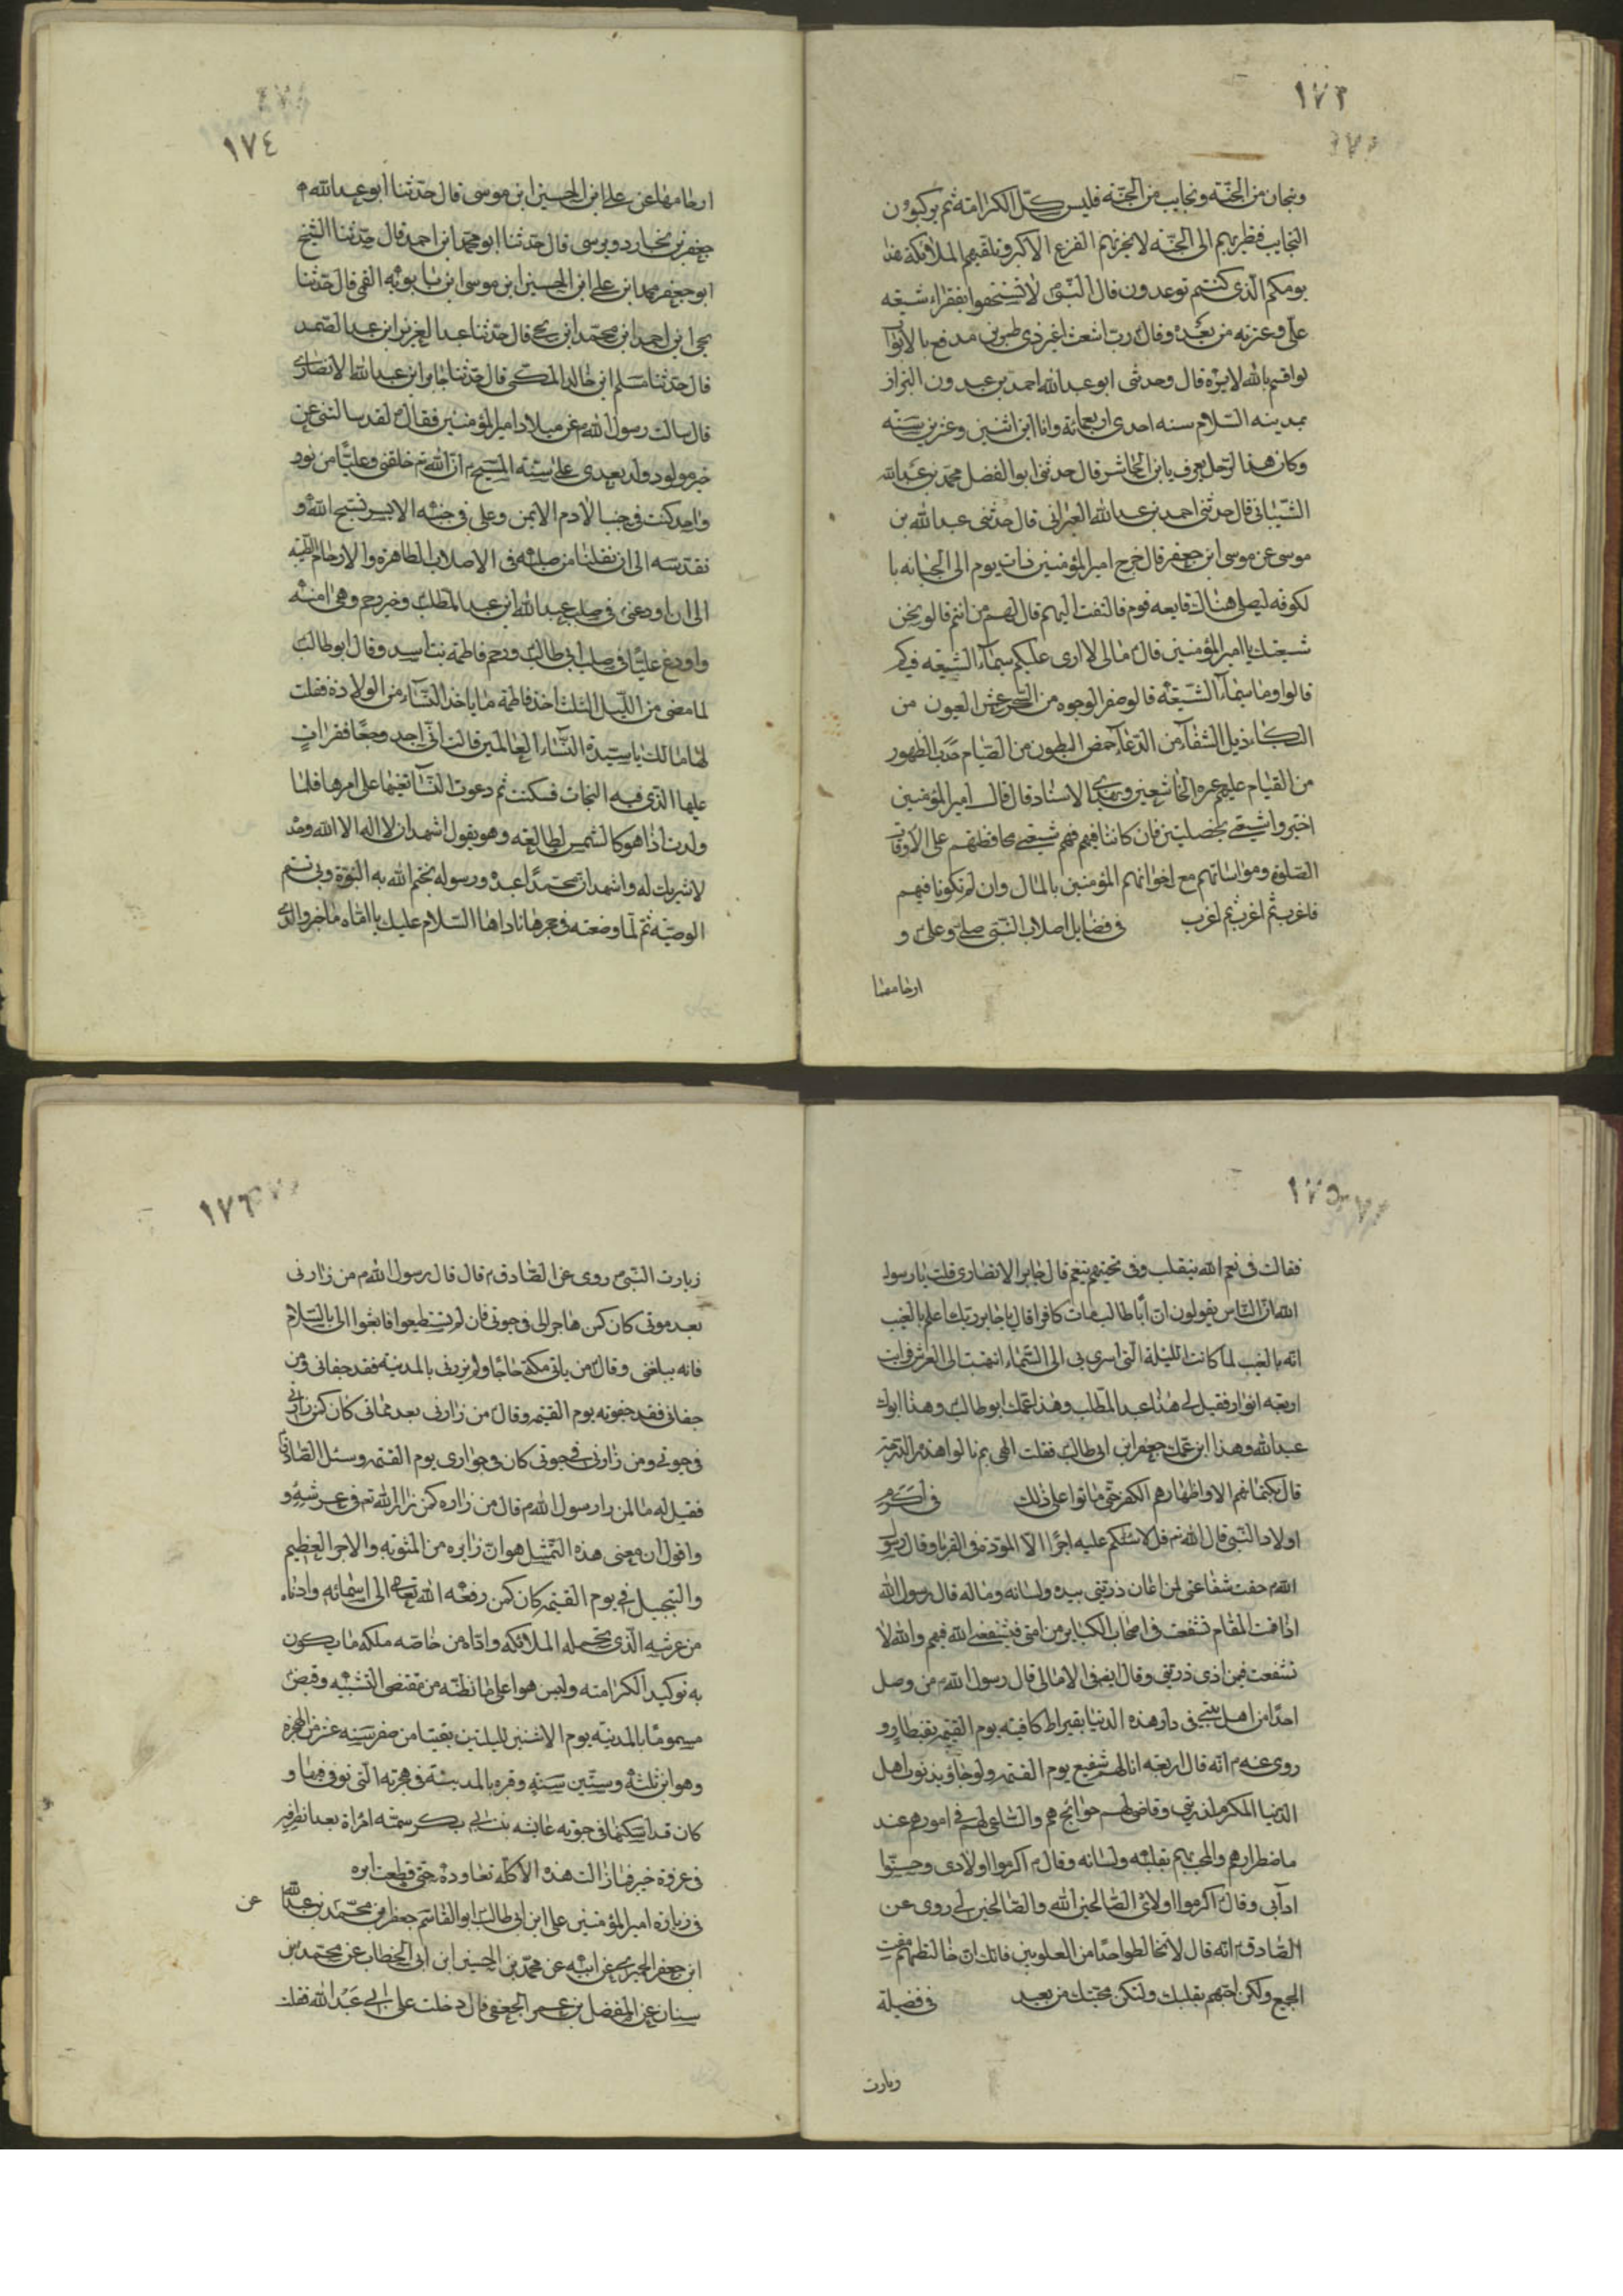 ١٧٣
وتيجان من الجنة ونجايب من الجنة فليس كل الكرامة ثم يركبون
النجايب فطيرتهم الى الجنة لا يحزنهم الفزع الاكبر وتلقيهم الملائكة هذا
يومكم الذي كنتم توعدون قال النبي لا تستخفوا بفقراء شيعه
علي وعترته من بعده وقال رب اشعث اغبر ذي طمرين مدفع بالابواب
لو اقسم بالله لابره قال وحدثني ابو عبد الله احمد بن عبدون البزاز
بمدينه السلام سنه احدى اربعمائة وانا ابن اثنين وعشرين سنه
وكان هذا الرجل يعرف بابن الحاشر قال حدثني ابو الفضل محمد بن عبد الله
الشيباني قال حدثني احمد بن عبد الله قال حدثني عبد الله بن
موسى عن موسى ابن جعفر قال خرج امير المؤمنين ذات يوم الى الجبانه با
لكوفه ليصلي هناك فتابعه قوم فالتفت اليهم قال لهم من انتم قالو نحن
شيعتك يا امير المؤمنين قال مالي لا ارى عليكم سيماء الشيعه فيكم
قالوا وما سيماء الشيعة قالو صفر الوجوه من السهر عمش العيون من
البكاء ذبل الشفاه من الدعاء خمص البطون من الصيام حدب الظهور
من القيام عليهم غبرة الخاشعين وبهذا الاسناد قال قال امير المؤمنين
اختبروا شيعتي بخصلتين فان كانتا فيهم فهم شيعتي محافظتهم على الاوقات
الصلوة ومواساتهم مع اخوانهم المؤمنين بالمال وان لم تكونا فيهم
فاغرب ثم اغرب ثم اغرب في فضايل اصلاب النبي صلى وعلى و
ارحامها
١٧٤
ارحامها عن علي ابن الحسين ابن موسى قال حدثنا ابو عبد الله
جعفر بن محمد دوريستى قال حدثنا ابو محمد ابن احمد قال حدثنا الشيخ
ابو جعفر محمد ابن علي ابن الحسين ابن موسى ابن بابويه القمي قال حدثنا
يحيى ابن احمد ابن محمد ابن يحيى قال حدثنا عبد العزيز ابن عبد الصمد
قال حدثنا مسلم ابن خالد المكي قال حدثنا جابر ابن عبد الله الانصاري
قال سالت رسول الله عن ميلاد امير المؤمنين فقال لقد سالتني عن
خير مولود ولد بعدي على سنة المسيح ان الله تم خلقني وعليا من نور
واحد كنت في جنب الادم الايمن وعلي في جنبه الايسر نسبح الله و
نقدسه الى ان نقلنا من صلبه في الاصلاب الطاهرة والارحام الطيبة
الى ان اودعني في صلب عبد الله ابن عبد المطلب وخير رحم وهي امنة
واودع عليا في صلب ابي طالب ورحم فاطمة بنت اسد وقال ابو طالب
لما مضى من الليل الثلث اخذ فاطمة ما ياخذ النساء من الولادة فقلت
لها مالك يا سيدة النساء العالمين قالت اني اجد وجعا فقرات
عليها الذي فيه النجاة فسكنت ثم دعوت النساء تعينها على امرها فلما
ولدت اذا هو كالشمس الطالعه وهو يقول اشهد ان لا اله الا الله وحده
لا شريك له واشهد ان محمدا عبده ورسوله يختم الله به النبوة وبي تتم
الوصيه ثم لما وضعته في حجرها ناداها السلام عليك يا اماه ما خبر والدي
١٧٥
فقالت في نعم الله يتقلب وفي نحيتهم ينعم قال جابر الانصاري قلت يا رسول
الله ان الناس يقولون ان ابا طالب مات كافرا قال يا جابر ربك اعلم بالغيب
انه بالغيب لما كانت الليلة التي اسري بي الى السماء انتهيت الى العرش فرايت
اربعه انوار فقيل لي هذا عبد المطلب وهذا عمك ابو طالب وهذا ابوك
عبد الله وهذا ابن عمك جعفر ابن ابي طالب فقلت الهي بم نالوا هذه الدرجة
قال بكتمانهم الا واظهارهم الكفر حتى ماتوا على ذلك في اكرم
اولاد النبي قال الله تم قل لا اسئلكم عليه اجرا الا المودة في القربى وقال رسول
الله حقت شفاعتي لمن اعان ذريتي بيده ولسانه وماله قال رسول الله
اذا قمت المقام تشفعت في اصحاب الكبابر من امتي فيشفعني الله فيهم والله لا
تشفعت فيمن اذى ذريتي وقال ايضا في الامالي قال رسول الله من وصل
احدا من اهل بيتي في دار هذه الدنيا بقيراط كافيته يوم القيمه بقنطار و
روى عنه انه قال اربعه انا لهم شفيع يوم القيمه ولو جاؤ بذنوب اهل
الدنيا المكرم لذريتي وقاضي لهم حوائجهم والساعي لهم في امورهم عند
ما ضطرارهم والمحب لهم بقلبه ولسانه وقال اكرموا اولادي وحسنوا
ادابي وقال اكرموا اولادي الصالحين لله والصالحين لي روى عن
الصادق انه قال لا تخالطوا احدا من العلويين فانك ان خالطتهم مقت
الجميع ولكن احبهم بقلبك ولتكن محبتك من بعيد في فضيلة
زيارت
١٧٦
زيارت النبي روى عن الصادق قال قال رسول الله من زارني
بعد موتي كان كمن هاجر الي في حيوتي فان لم تستطيعوا فابعثوا الي بالسلام
فانه يبلغني وقال من ياتي مكة حاجا ولم يزرني بالمدينه فقد جفاني ومن
جفاني فقد جفوته يوم القيمه وقال من زارني بعد مماتي كان كمن زارني
في حيوتي ومن زارني في حيوتي كان في جواري يوم القيمه وسئل الصادق
فقيل له ما لمن زار رسول الله قال من زاره كمن زار الله تم في عرشه و
واقول ان معنى هذه التمثيل هو ان زايره من المثوبة والاجر العظيم
والتبجيل في يوم القيمه كان كمن رفعه الله تعالى الى اسمائه وادناه
من عرشه الذي تحمله الملائكه واداه من خاصه ملكه ما يكون
به توكيد الكرامته وليس هو على ما تظنه من مقتضى التشبيه وقبض
مسموما بالمدينه يوم الاثنين لليلتين بقيتا من صفر سنه عشر من الهجرة
وهو ابن ثلثه وستين سنه وقبره بالمدينة في حجرته التي توفي فيها و
كان قد اسكنها في حيوته عايشه بنت ابي بكر سمته امراة بعد
في غزوة خيبر فما زالت هذه الاكله تعاوده حتى قطعت ابهره
في زيارة امير المؤمنين علي ابن ابي طالب ابو القاسم جعفر بن محمد بن عبد الله عن
ابن جعفر الحميري عن ابيه عن محمد بن الحسين ابن ابي الخطاب عن محمد بن
سنان عن المفضل بن عمر الجعفي قال دخلت على ابي عبد الله فقلت